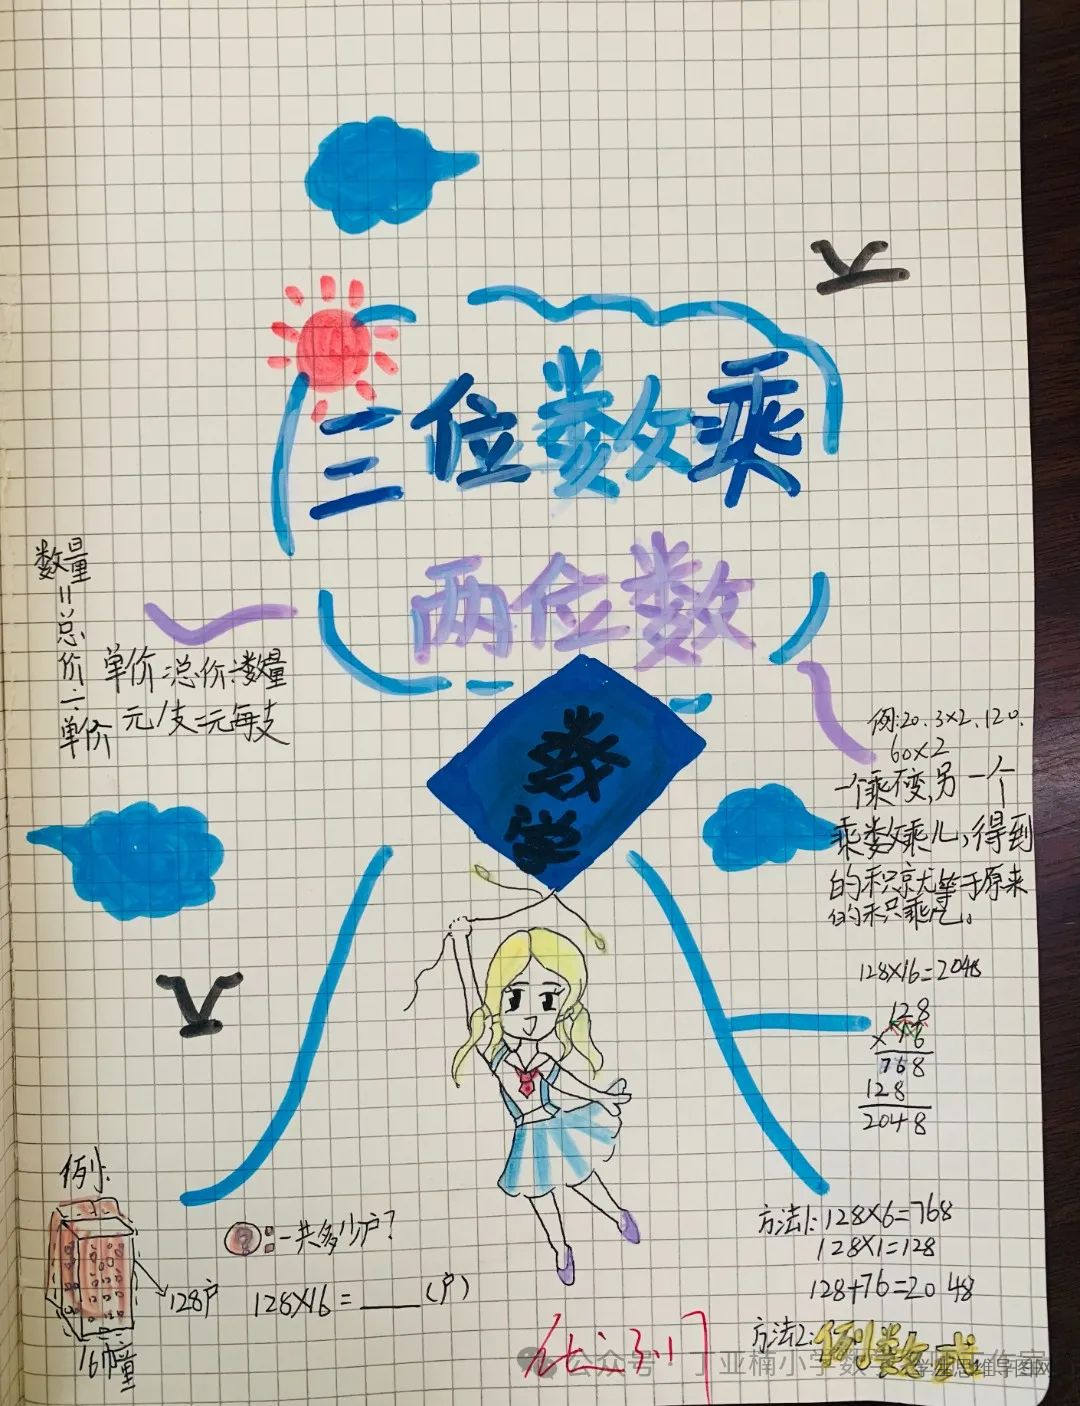 三位数乘
两位数
数学
数量=总价÷单价
单价=总价÷数量
元/支=元每支
例:20.3×2.120.
60×2
一个乘不变,另一个
乘数乘几,得到
的积就等于原来
的积乘几。
128×16=2048
128
×16
768
128
2048
例:
128户
16幢
?:一共多少户?
128×16=____(户)
方法1:128×6=768
128×1=128
128+76=2048
方法2:列数式
公众号·丁亚楠小学数
学生思维导图网